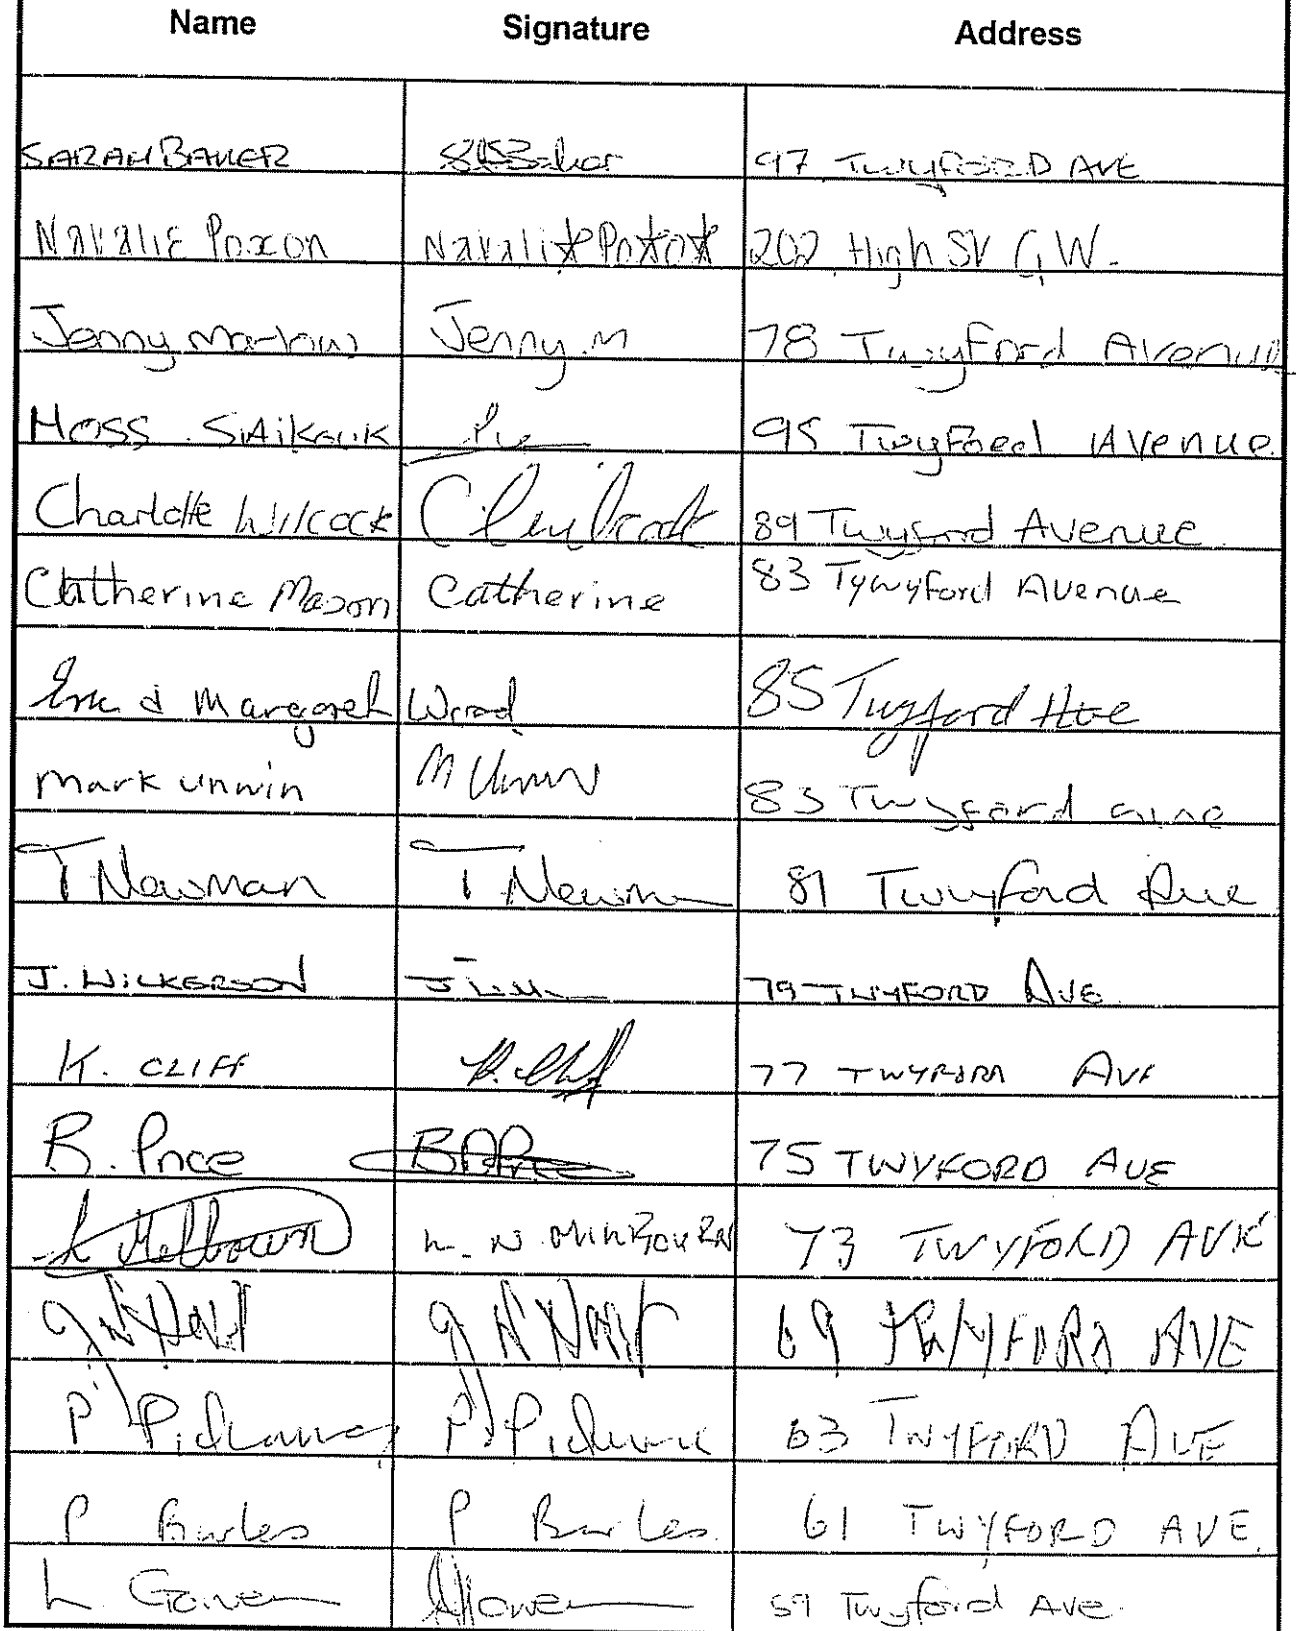 Name Signature Address
SARAH BAKER SBaker 97 TWYFORD AVE
Natalie Poxon Natalie Poxon 202 High St G.W.
Jenny Marlow Jenny.M 78 Twyford Avenue
MOSS 95 Twyford Avenue
Charlotte Wilcock 89 Twyford Avenue
Catherine Mason Catherine 83 Tywyford Avenue
Eric & Margaret Wood 85 Twyford Ave
Mark Unwin M Unwin 83 Twyford ave
T Newman T Newman 81 Twyford Ave
J. WILKERSON 79 TWYFORD AVE
K. CLIFF K. Cliff 77 TWYFORD AVE
B. Price B Price 75 TWYFORD AVE
73 TWYFORD AVE
69 TWYFORD AVE
P 63 TWYFORD AVE
P Burles P Burles 61 TWYFORD AVE.
L. 59 Twyford Ave.